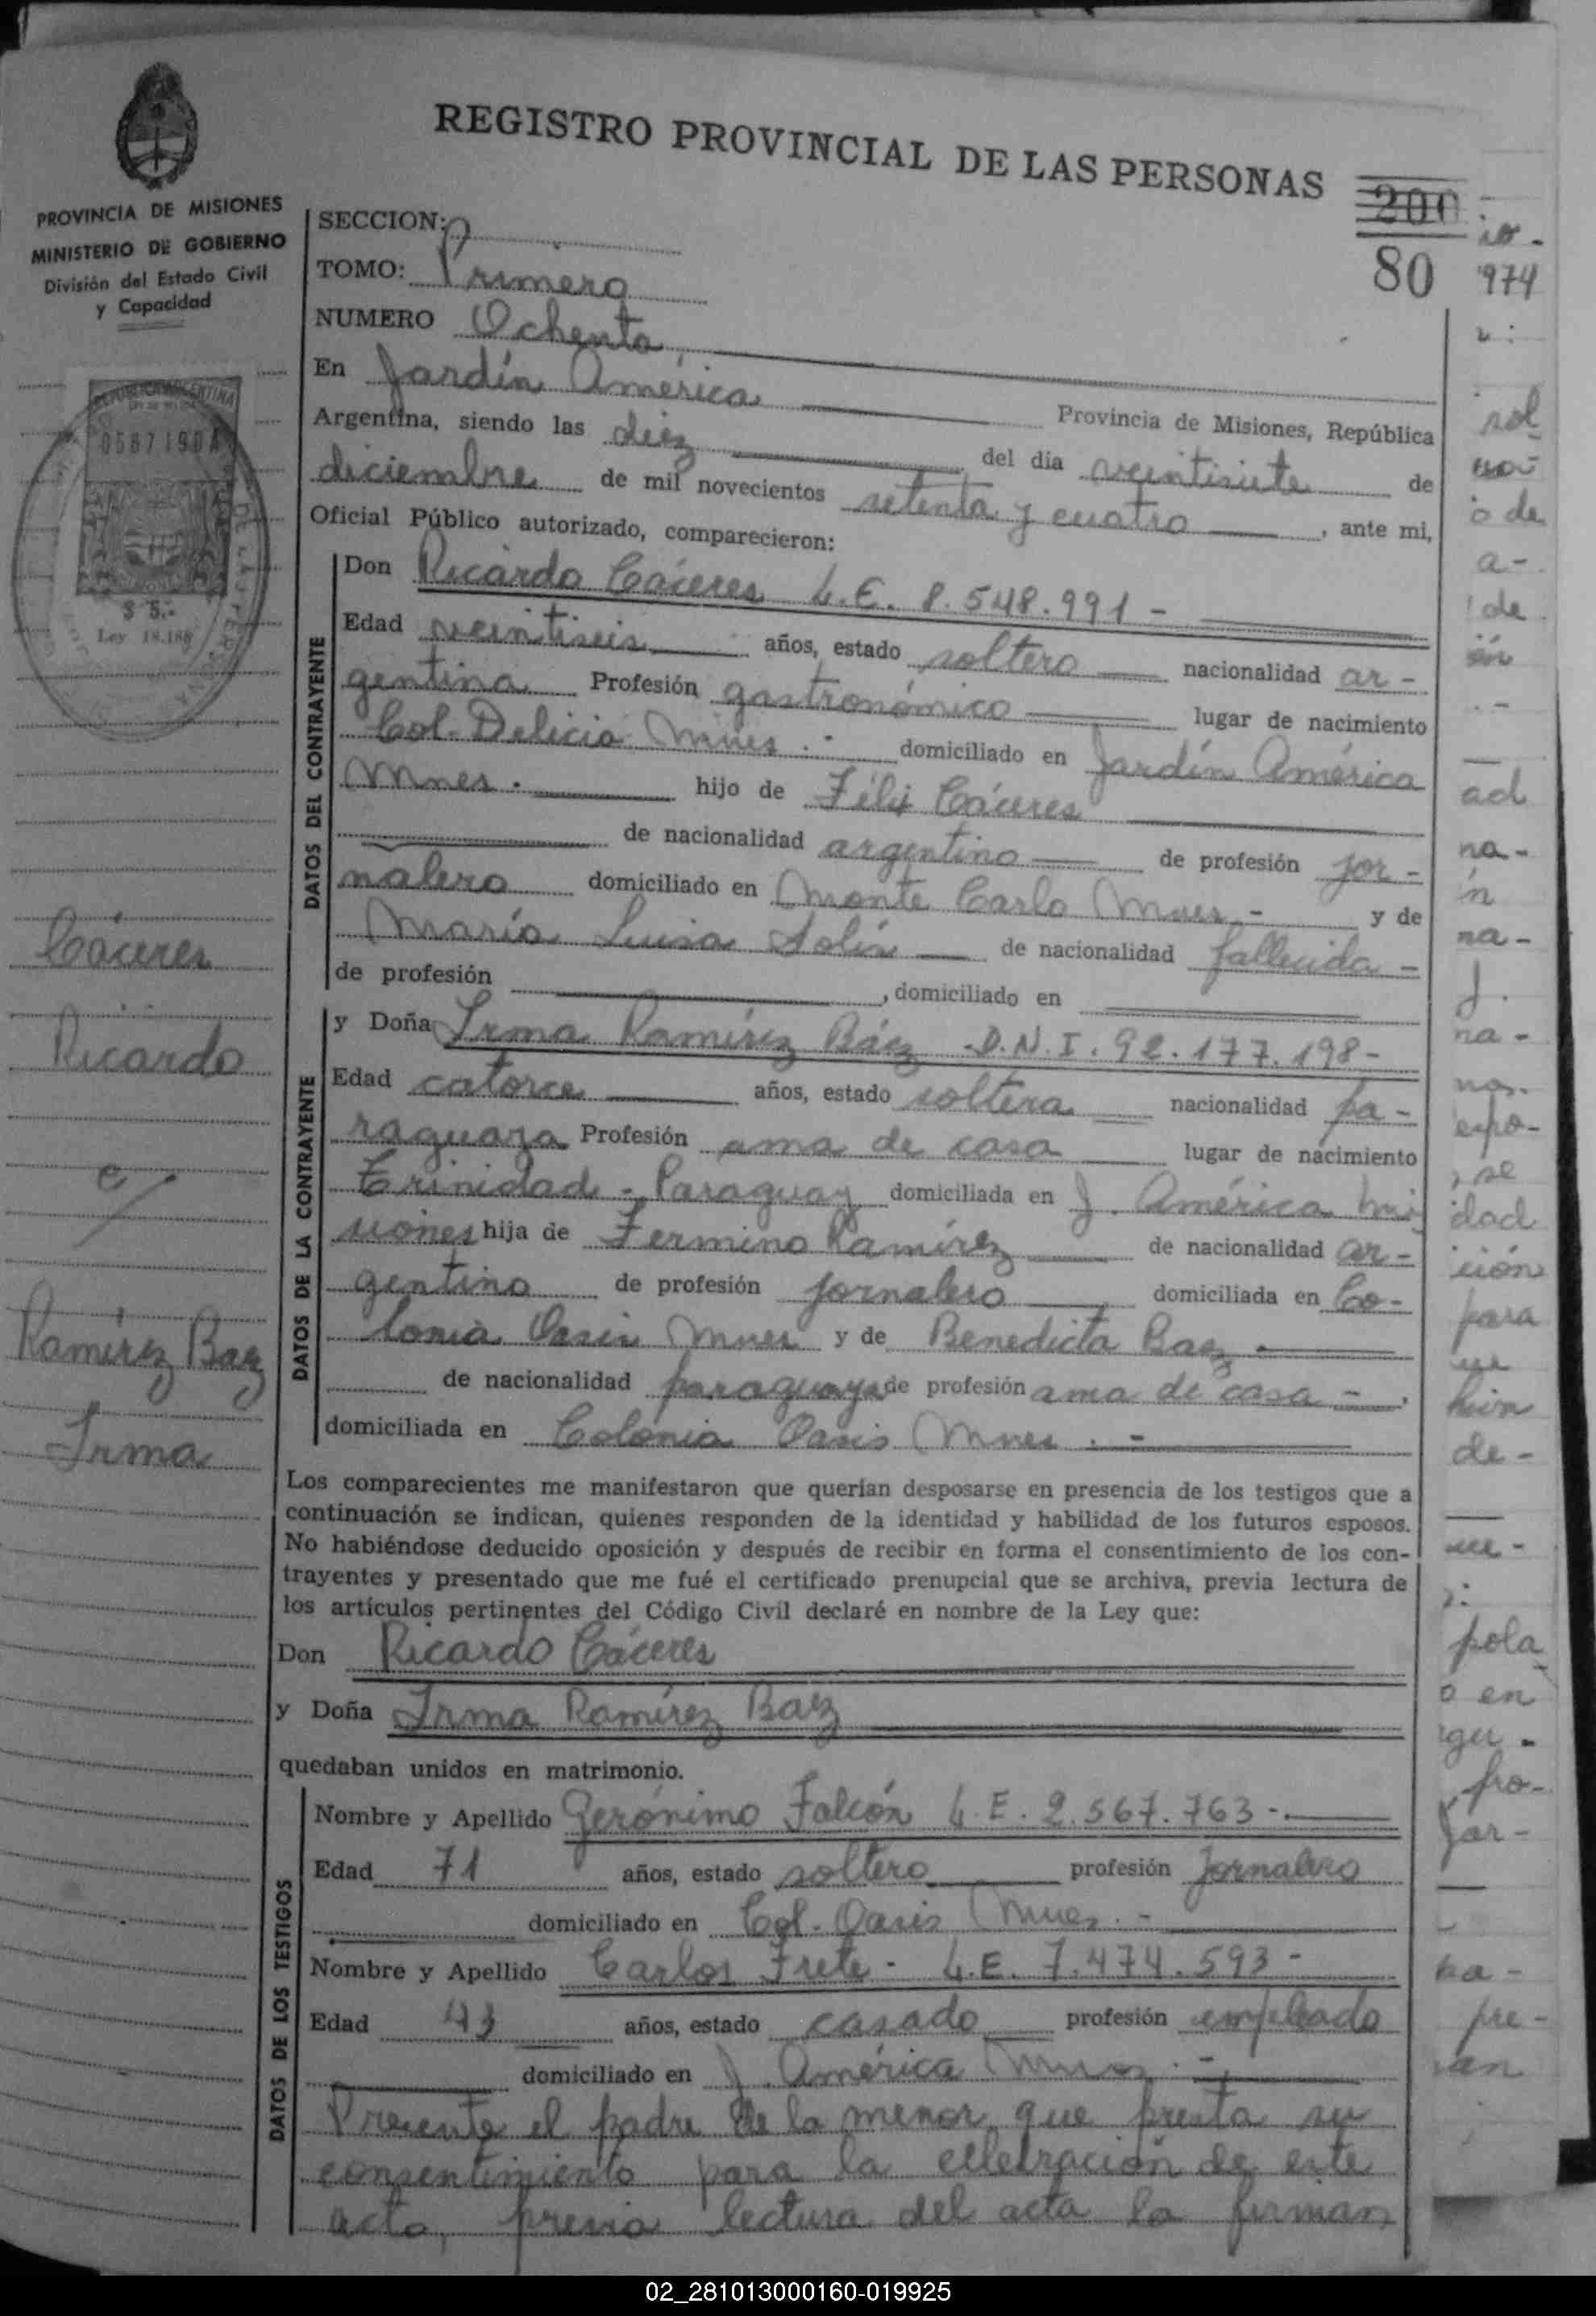 REGISTRO PROVINCIAL DE LAS PERSONAS
200
80
PROVINCIA DE MISIONES
MINISTERIO DE GOBIERNO
División del Estado Civil
y Capacidad
SECCION:
TOMO: Primero
NUMERO Ochenta
En Jardín América Provincia de Misiones, República
Argentina, siendo las diez del dia veintisiete de
diciembre de mil novecientos setenta y cuatro, ante mi,
Oficial Público autorizado, comparecieron:
REPUBLICA ARGENTINA
$ 5.-
Ley 18.188
DATOS DEL CONTRAYENTE
Don Ricardo Cáceres L.E. 8.548.991 -
Edad veintiseis años, estado soltero nacionalidad ar-
gentina Profesión gastronómico lugar de nacimiento
Col. Delicia Mnes.- domiciliado en Jardín América
Mnes. hijo de Félix Cáceres
de nacionalidad argentino de profesión jor-
nalero domiciliado en Monte Carlo Mnes - y de
María Luisa de nacionalidad fallecida -
de profesión , domiciliado en
DATOS DE LA CONTRAYENTE
y Doña Irma Ramírez Báez - D.N.I. 92.177.198-
Edad catorce años, estado soltera nacionalidad pa-
raguaya Profesión ama de casa lugar de nacimiento
Trinidad - Paraguay domiciliada en J. América Mi
siones hija de Fermino Ramírez de nacionalidad ar-
gentino de profesión jornalero domiciliada en Co-
lonia Oasis Mnes y de Benedicta Baez
de nacionalidad paraguaya de profesión ama de casa -
domiciliada en Colonia Oasis Mnes. -
Los comparecientes me manifestaron que querían desposarse en presencia de los testigos que a
continuación se indican, quienes responden de la identidad y habilidad de los futuros esposos.
No habiéndose deducido oposición y después de recibir en forma el consentimiento de los con-
trayentes y presentado que me fué el certificado prenupcial que se archiva, previa lectura de
los artículos pertinentes del Código Civil declaré en nombre de la Ley que:
Don Ricardo Cáceres
y Doña Irma Ramírez Baez
quedaban unidos en matrimonio.
DATOS DE LOS TESTIGOS
Nombre y Apellido Gerónimo Falcón L.E. 2.567.763-
Edad 71 años, estado soltero profesión jornalero
domiciliado en Col. Oasis Mnes. -
Nombre y Apellido Carlos Frete - L.E. 7.474.593 -
Edad 43 años, estado casado profesión empleado
domiciliado en J. América Mnes. -
Presente el padre de la menor que presta su
consentimiento para la celebración de este
acto, previa lectura del acta la firman
Cáceres
Ricardo
c/
Ramírez Baez
Irma
974
ad
na-
na-
dad
para
de-
pola
o en
pro-
Jar-
pre-
02_281013000160-019925